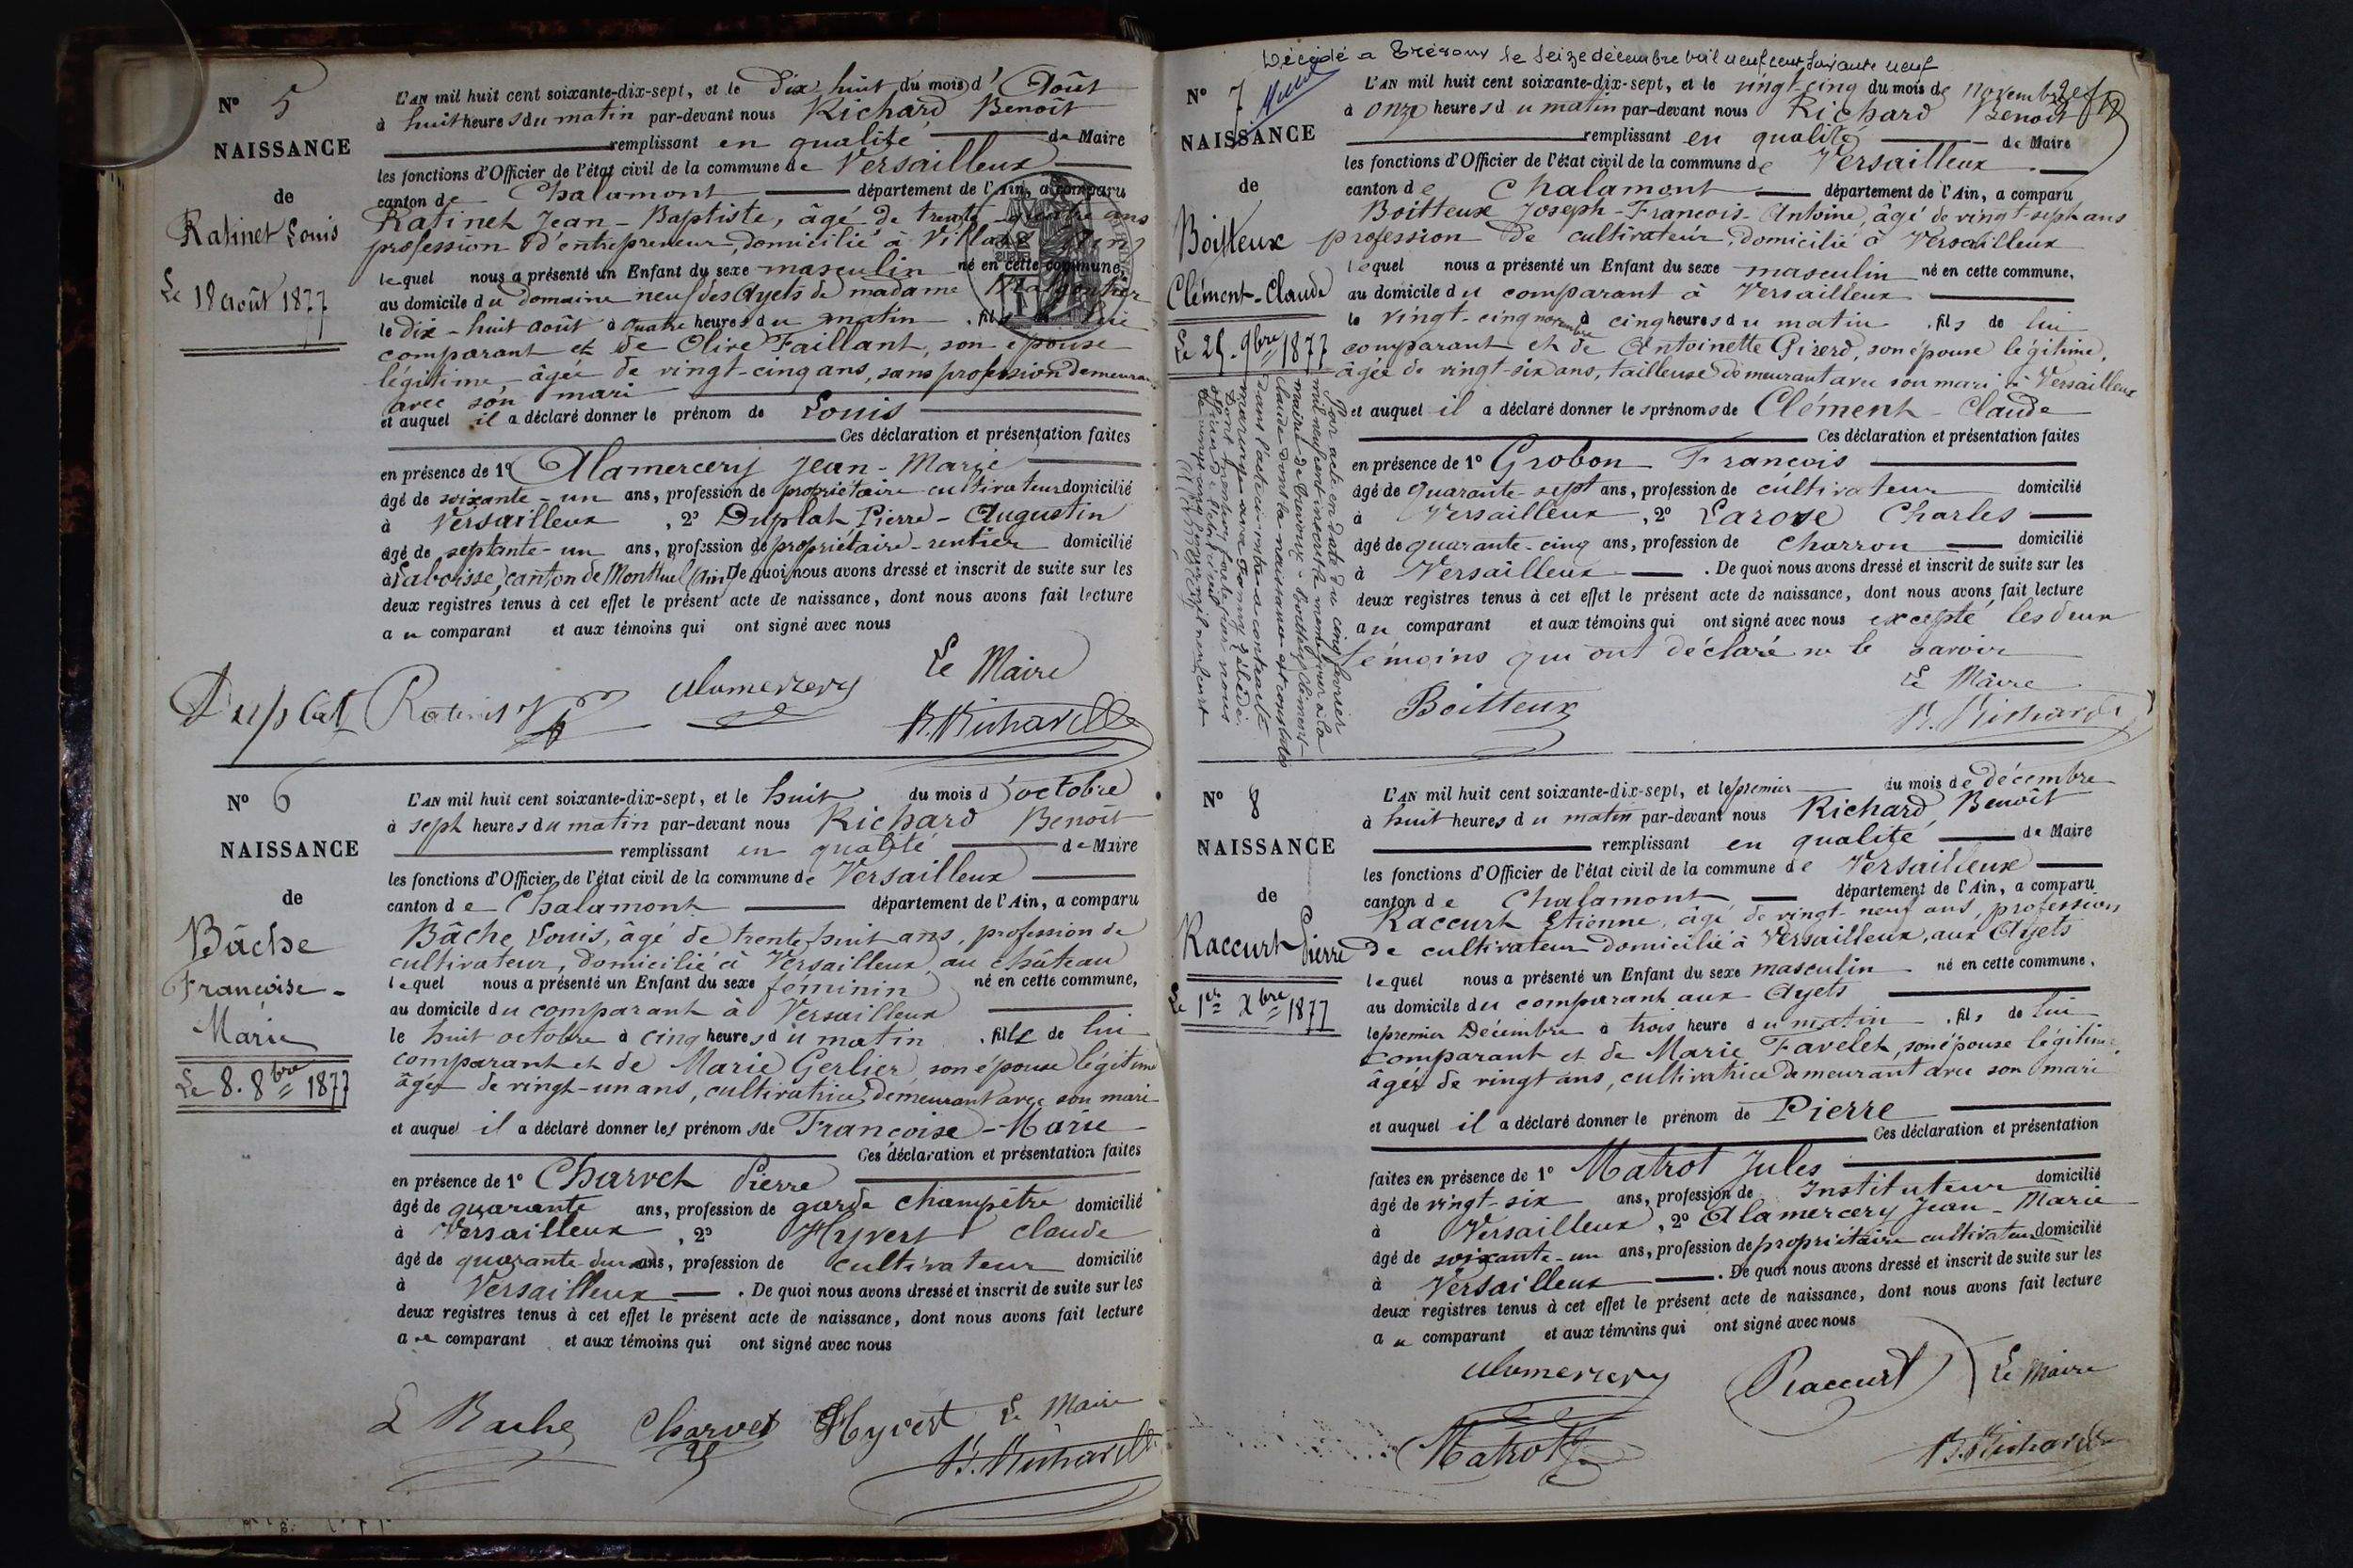 N° 5
NAISSANCE
de
Ratinet Louis
Le 18 août 1877
L'AN mil huit cent soixante-dix-sept, et le Dix huit du mois d'Août
à huit heures du matin par-devant nous Richard Benoît
remplissant en qualité de Maire
les fonctions d'Officier de l'état civil de la commune de Versailleux
canton de Chalamont département de l'Ain, a comparu
Ratinet Jean-Baptiste, âgé de trente-quatre ans
profession d'entrepreneur, domicilié à Villars
lequel nous a présenté un Enfant du sexe masculin né en cette commune,
au domicile du domaine neuf des Ayets de madame
le dix-huit août à quatre heures du matin, fils de lui
comparant et de Olive Faillant, son épouse
légitime, âgée de vingt-cinq ans, sans profession demeurant
avec son mari
et auquel il a déclaré donner le prénom de Louis
Ces déclaration et présentation faites
en présence de 1° Alamercery Jean-Marie
âgé de soixante-un ans, profession de propriétaire cultivateur domicilié
à Versailleux, 2° Duplat Pierre-Augustin
âgé de septante-un ans, profession de propriétaire-rentier domicilié
à Laboisse, canton de Montluel (Ain) De quoi nous avons dressé et inscrit de suite sur les
deux registres tenus à cet effet le présent acte de naissance, dont nous avons fait lecture
au comparant et aux témoins qui ont signé avec nous
Le Maire
Duplat Ratinet Alamercery B. Richard
N° 6
NAISSANCE
de
Bâche
Françoise-
Marie
Le 8. 8bre 1877
L'AN mil huit cent soixante-dix-sept, et le huit du mois d'octobre
à sept heures du matin par-devant nous Richard Benoît
remplissant en qualité de Maire
les fonctions d'Officier de l'état civil de la commune de Versailleux
canton de Chalamont département de l'Ain, a comparu
Bâche Louis, âgé de trente huit ans, profession de
cultivateur, domicilié à Versailleux au château
lequel nous a présenté un Enfant du sexe féminin né en cette commune,
au domicile du comparant à Versailleux
le huit octobre à cinq heures du matin, fille de lui
comparant et de Marie Gerlier, son épouse légitime
âgée de vingt-un ans, cultivatrice, demeurant avec son mari
et auquel il a déclaré donner les prénoms de Françoise-Marie
Ces déclaration et présentation faites
en présence de 1° Charvet Pierre
âgé de quarante ans, profession de garde champêtre domicilié
à Versailleux, 2° Hyvert Claude
âgé de quarante-deux ans, profession de cultivateur domicilié
à Versailleux. De quoi nous avons dressé et inscrit de suite sur les
deux registres tenus à cet effet le présent acte de naissance, dont nous avons fait lecture
au comparant et aux témoins qui ont signé avec nous
L Bache Charvet Hyvert Le Maire
B. Richard
Décédé a Trévoux le seize décembre mil neuf cent soixante neuf
N° 7
NAISSANCE
de
Boitteux
Clément-Claude
Le 25. 9bre 1877
L'AN mil huit cent soixante-dix-sept, et le vingt-cinq du mois de novembre
à onze heures du matin par-devant nous Richard Benoît
remplissant en qualité de Maire
les fonctions d'Officier de l'état civil de la commune de Versailleux
canton de Chalamont département de l'Ain, a comparu
Boitteux Joseph-François-Antoine, âgé de vingt-sept ans
profession de cultivateur, domicilié à Versailleux
lequel nous a présenté un Enfant du sexe masculin né en cette commune,
au domicile du comparant à Versailleux
le vingt-cinq novembre à cinq heures du matin, fils de lui
comparant et de Antoinette Girerd, son épouse légitime,
âgée de vingt-six ans, tailleuse demeurant avec son mari à Versailleux
et auquel il a déclaré donner les prénoms de Clément-Claude
Ces déclaration et présentation faites
en présence de 1° Grobon François
âgé de quarante-sept ans, profession de cultivateur domicilié
à Versailleux, 2° Larose Charles
âgé de quarante-cinq ans, profession de charron domicilié
à Versailleux. De quoi nous avons dressé et inscrit de suite sur les
deux registres tenus à cet effet le présent acte de naissance, dont nous avons fait lecture
au comparant et aux témoins qui ont signé avec nous excepté les deux
témoins qui ont déclaré ne le savoir
Le Maire
Boitteux B. Richard
Par acte en date du cinq février
mil neuf cent inscrit le même jour à la
mairie de Boitteux Clément-
Claude dont la naissance est constatée
dans l'acte ci-contre a contracté
mariage avec
Dont mention faite par nous
N° 8
NAISSANCE
de
Raccurt Pierre
Le 1er Xbre 1877
L'AN mil huit cent soixante-dix-sept, et le premier du mois de décembre
à huit heures du matin par-devant nous Richard, Benoît
remplissant en qualité de Maire
les fonctions d'Officier de l'état civil de la commune de Versailleux
canton de Chalamont département de l'Ain, a comparu
Raccurt Etienne, âgé de vingt-neuf ans, profession
de cultivateur domicilié à Versailleux, aux Ayets
lequel nous a présenté un Enfant du sexe masculin né en cette commune,
au domicile du comparant aux Ayets
le premier Décembre à trois heure du matin, fils de lui
comparant et de Marie Favelet, son épouse légitime,
âgée de vingt ans, cultivatrice demeurant avec son mari
et auquel il a déclaré donner le prénom de Pierre
Ces déclaration et présentation
faites en présence de 1° Matrot Jules
âgé de vingt-six ans, profession de Instituteur domicilié
à Versailleux, 2° Alamercery Jean-Marie
âgé de soixante-un ans, profession de propriétaire cultivateur domicilié
à Versailleux. De quoi nous avons dressé et inscrit de suite sur les
deux registres tenus à cet effet le présent acte de naissance, dont nous avons fait lecture
au comparant et aux témoins qui ont signé avec nous
Alamercery Raccurt Le Maire
Matrot B. Richard